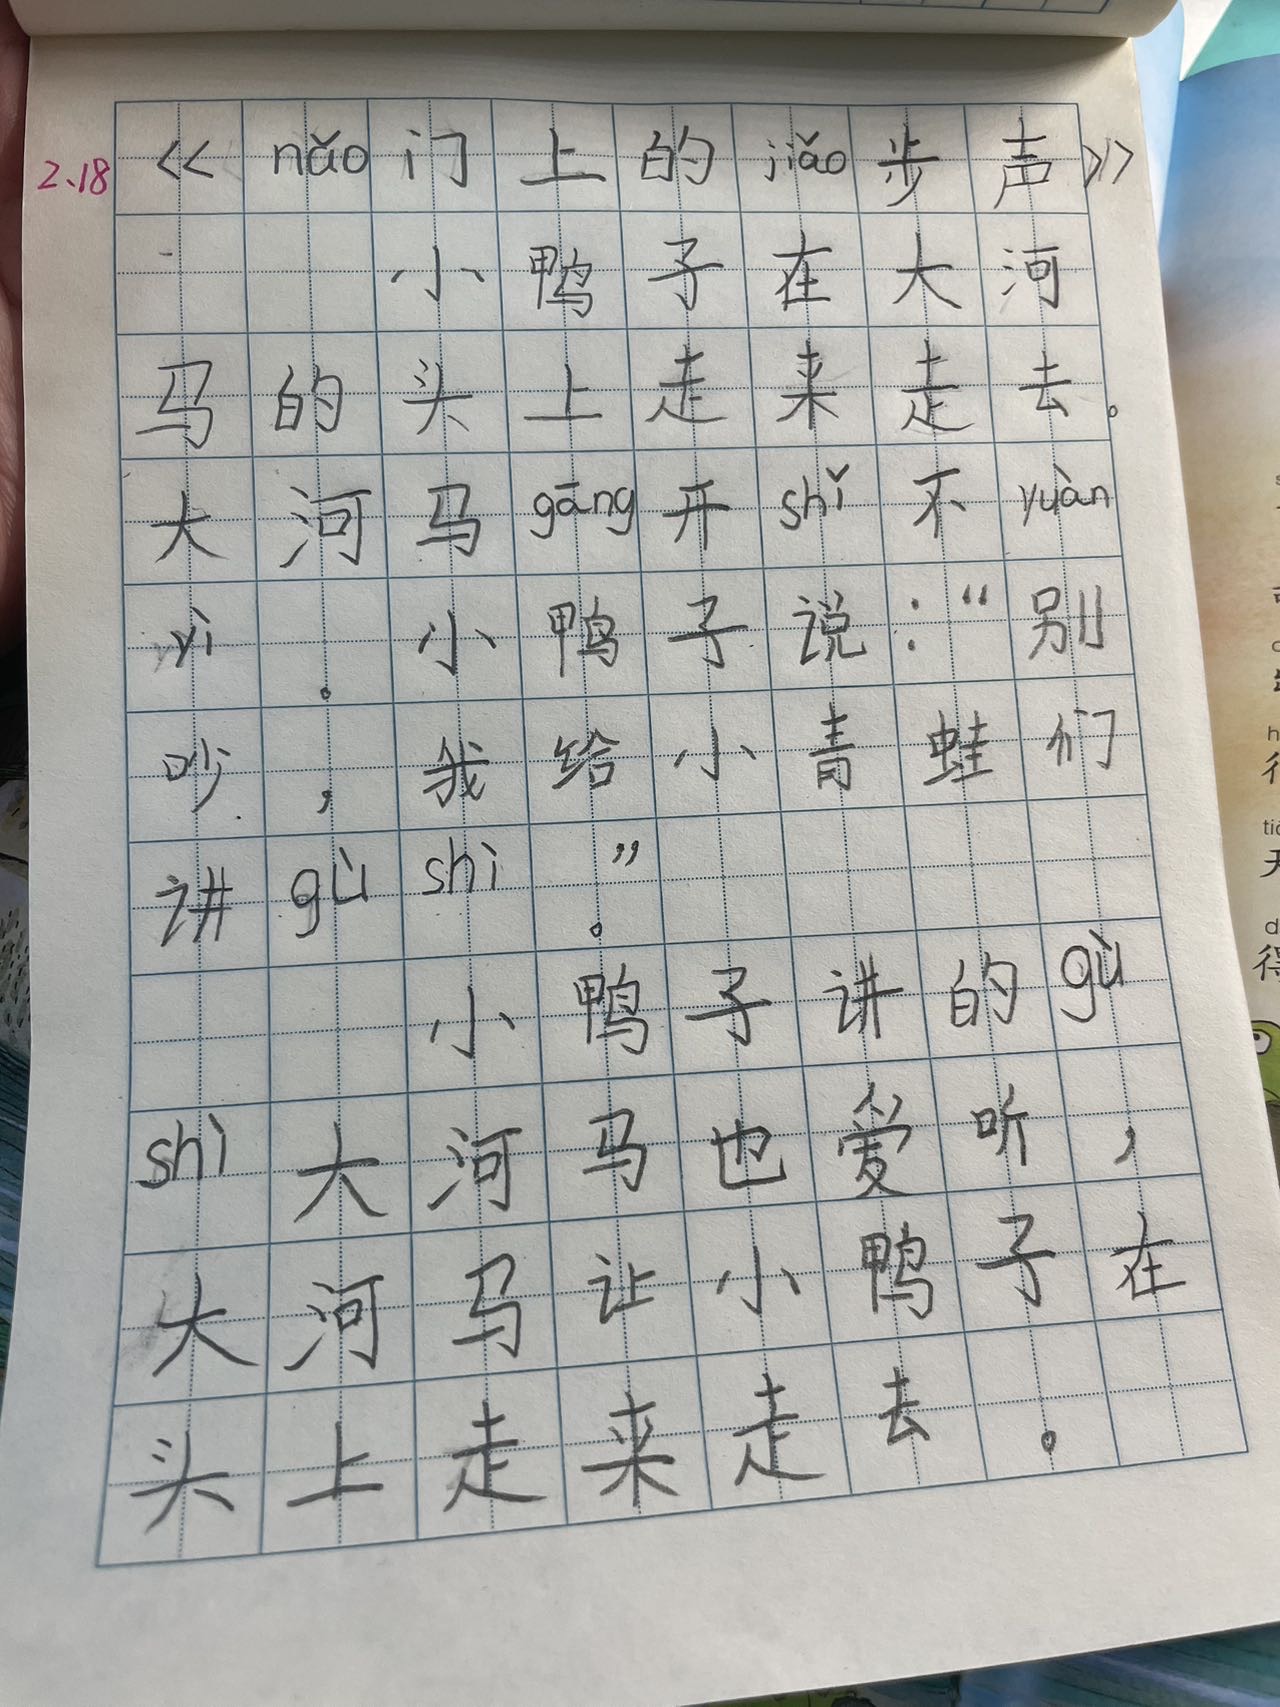 2.18
《nǎo门上的jiǎo步声》
小鸭子在大河
马的头上走来走去。
大河马gāng开shǐ不yuàn
yì。小鸭子说：“别
吵，我给小青蛙们
讲gùshì。”
小鸭子讲的gù
shì大河马也爱听，
大河马让小鸭子在
头上走来走去。